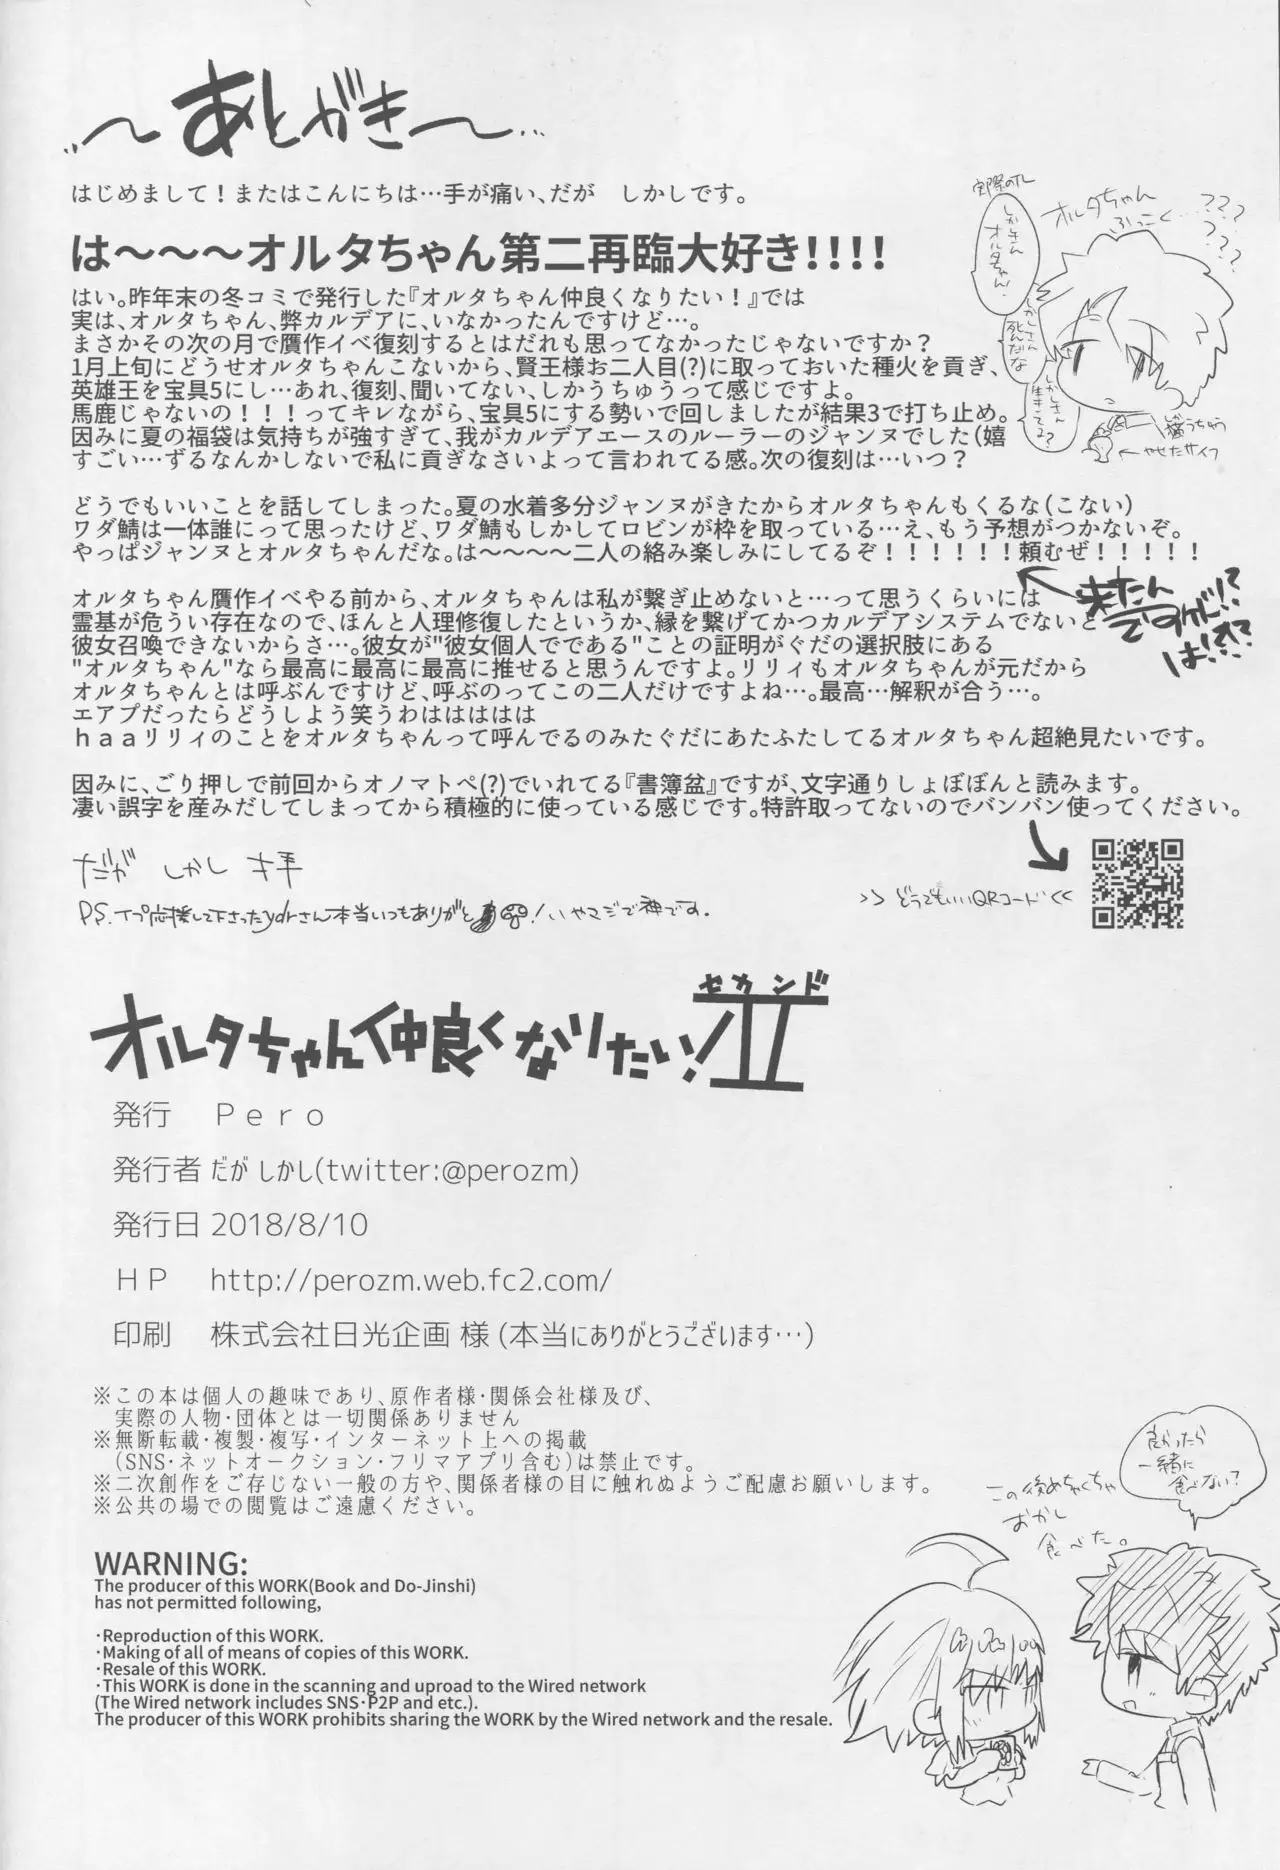 ～あとがき～
はじめまして！またはこんにちは…手が痛い、だが　しかしです。
は～～～オルタちゃん第二再臨大好き！！！！
はい。昨年末の冬コミで発行した『オルタちゃん仲良くなりたい！』では
実は、オルタちゃん、弊カルデアに、いなかったんですけど…。
まさかその次の月で贋作イベ復刻するとはだれも思ってなかったじゃないですか？
1月上旬にどうせオルタちゃんこないから、賢王様お二人目(?)に取っておいた種火を貢ぎ、
英雄王を宝具5にし…あれ、復刻、聞いてない、しかうちゅうって感じですよ。
馬鹿じゃないの！！！ってキレながら、宝具5にする勢いで回しましたが結果3で打ち止め。
因みに夏の福袋は気持ちが強すぎて、我がカルデアエースのルーラーのジャンヌでした（嬉
すごい…ずるなんかしないで私に貢ぎなさいよって言われてる感。次の復刻は…いつ？
どうでもいいことを話してしまった。夏の水着多分ジャンヌがきたからオルタちゃんもくるな（こない）
ワダ鯖は一体誰にって思ったけど、ワダ鯖もしかしてロビンが枠を取っている…え、もう予想がつかないぞ。
やっぱジャンヌとオルタちゃんだな。は～～～～二人の絡み楽しみにしてるぞ！！！！！！頼むぜ！！！！！
オルタちゃん贋作イベやる前から、オルタちゃんは私が繋ぎ止めないと…って思うくらいには
霊基が危うい存在なので、ほんと人理修復したというか、縁を繋げてかつカルデアシステムでないと
彼女召喚できないからさ…。彼女が"彼女個人でである"ことの証明がぐだの選択肢にある
"オルタちゃん"なら最高に最高に最高に推せると思うんですよ。リリィもオルタちゃんが元だから
オルタちゃんとは呼ぶんですけど、呼ぶのってこの二人だけですよね…。最高…解釈が合う…。
エアプだったらどうしよう笑うわはははははは
ｈａａリリィのことをオルタちゃんって呼んでるのみたぐだにあたふたしてるオルタちゃん超絶見たいです。
因みに、ごり押しで前回からオノマトペ(?)でいれてる『書簿盆』ですが、文字通りしょぼぼんと読みます。
凄い誤字を産みだしてしまってから積極的に使っている感じです。特許取ってないのでバンバン使ってください。
実際のTL
しかしさん
オルタちゃん！
しかしさん
死んだな
しかしさん
生きてる？
オルタちゃん
ふっこく…？？？
？？？
猫うちゅう
←やせたサイフ
来たん
ですけど！？
だが しかし 拝
>>どうでもいいQRコード<<
P.S.イプ応援して下さったydrさん本当いつもありがと！いやマジで神です。
セカンド
オルタちゃん仲良くなりたい！II
発行　Ｐｅｒｏ
発行者 だが しかし(twitter:@perozm)
発行日 2018/8/10
ＨＰ　http://perozm.web.fc2.com/
印刷　株式会社日光企画 様 (本当にありがとうございます…)
※この本は個人の趣味であり、原作者様・関係会社様及び、
実際の人物・団体とは一切関係ありません
※無断転載・複製・複写・インターネット上への掲載
（SNS・ネットオークション・フリマアプリ含む）は禁止です。
※二次創作をご存じない一般の方や、関係者様の目に触れぬようご配慮お願いします。
※公共の場での閲覧はご遠慮ください。
良かったら
一緒に
食べない？
この後めちゃくちゃ
おかし
食べた。
WARNING:
The producer of this WORK(Book and Do-Jinshi)
has not permitted following,
・Reproduction of this WORK.
・Making of all of means of copies of this WORK.
・Resale of this WORK.
・This WORK is done in the scanning and uproad to the Wired network
(The Wired network includes SNS・P2P and etc.).
The producer of this WORK prohibits sharing the WORK by the Wired network and the resale.